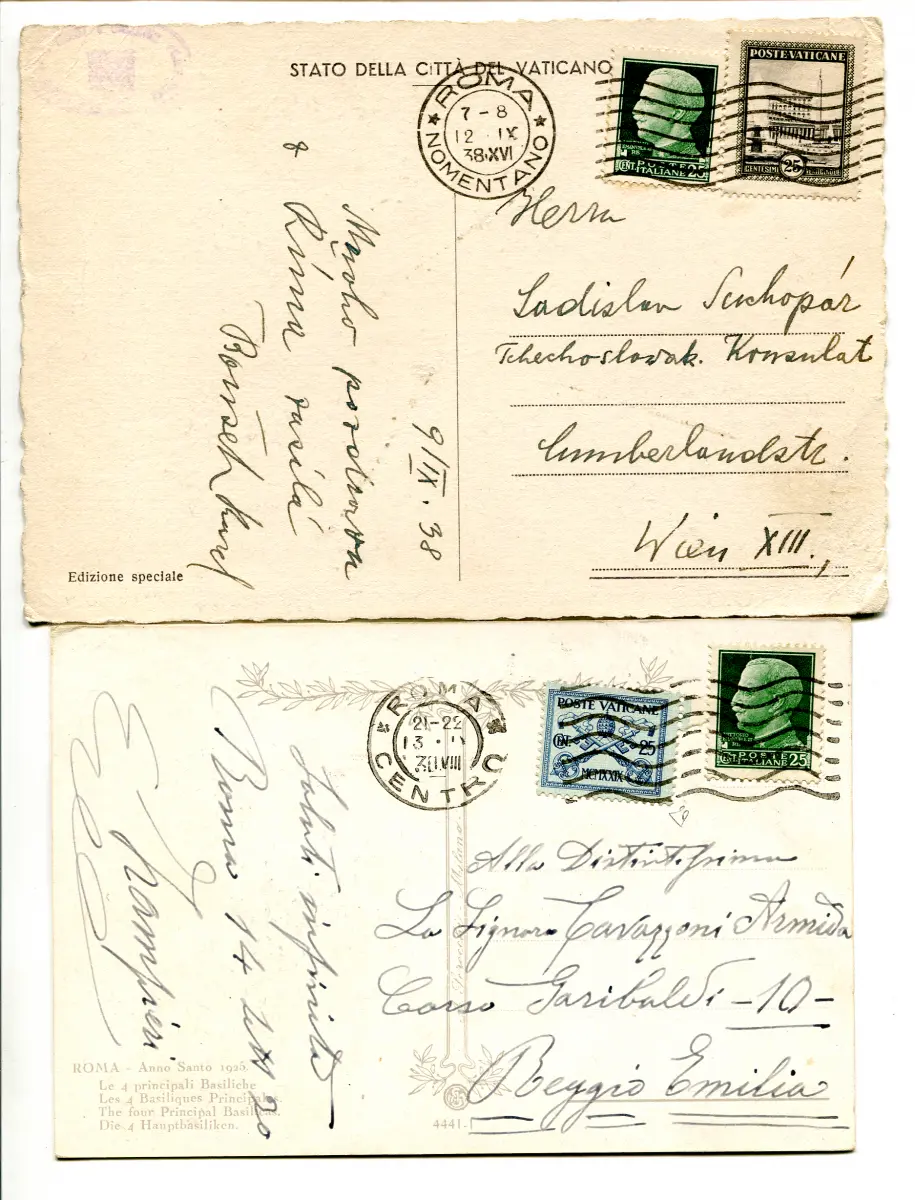 STATO DELLA CITTÀ DEL VATICANO
ROMA
NOMENTANO
7-8
12 · IX
38·XVI
CENT. POSTE 25
ITALIANE
POSTE VATICANE
CENTESIMI 25
&
Mnoho pozdravů
Říma zasílá
Karel
9/IX. 38
Herrn
Ladislav Suchopár
Tchechoslowak. Konsulat
Cumberlandstr.
Wien XIII.,
Edizione speciale
ROMA
CENTRO
21-22
13
VIII
POSTE VATICANE
CENT. 25
MCMXXIX
VITTORIO
CENT. POSTE
ITALIANE 25
Saluti infiniti
Roma 14
Alla Distintissima
La Signora Cavazzoni Armida
Corso Garibaldi -10-
Reggio Emilia
ROMA - Anno Santo 1925.
Le 4 principali Basiliche
Les 4 Basiliques Principales.
The four Principal Basilicas.
Die 4 Hauptbasiliken.
4441-
Milano.